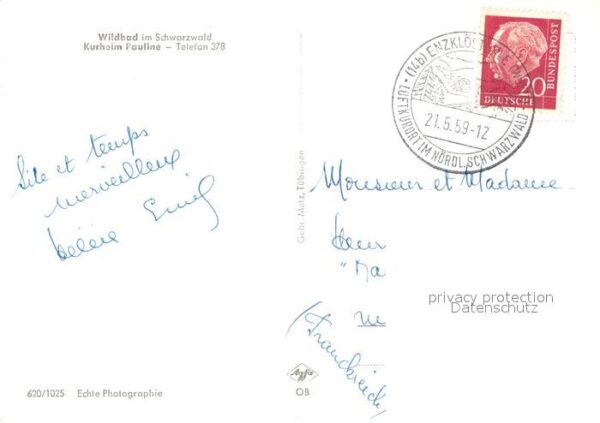 Wildbad im Schwarzwald
Kurheim Pauline – Telefon 378
Site et temps
merveilleux
Gebr. Metz, Tübingen
(14b) ENZKLÖSTERLE
LUFTKURORT IM NÖRDL. SCHWARZWALD
21.5.59-12
20
DEUTSCHE
BUNDESPOST
Monsieur et Madame
privacy protection
Datenschutz
(Frankreich)
620/1025 Echte Photographie
Agfa
OB